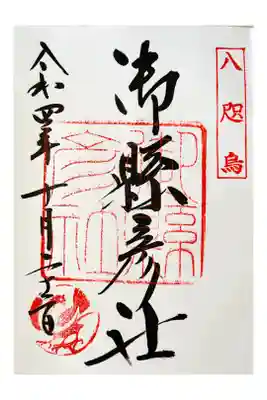 八咫烏
御縣彦社
令和四年十月二十二日